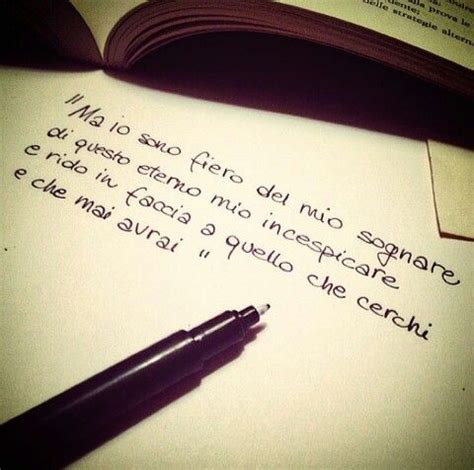 lla prova
dente:
delle strategie altern
"Ma io sono fiero del mio sognare
di questo eterno mio incespicare
e rido in faccia a quello che cerchi
e che mai avrai"